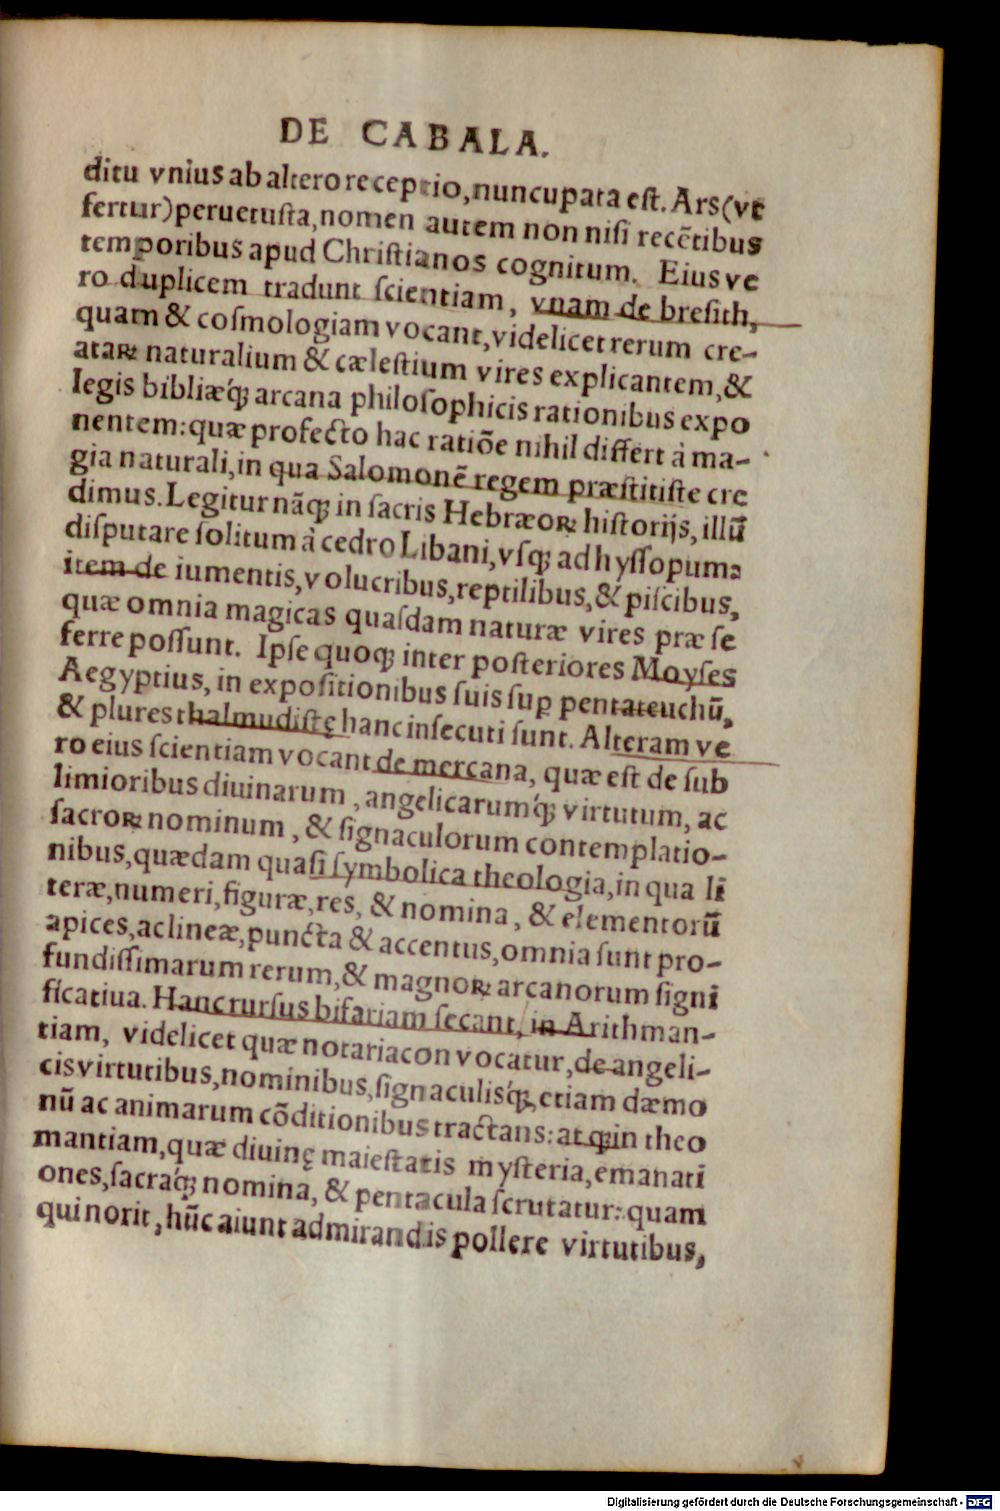 DE CABALA.
ditu vnius ab altero receptio, nuncupata eſt. Ars (vt
fertur) peruetuſta, nomen autem non niſi recẽtibus
temporibus apud Chriſtianos cognitum. Eius ve
ro duplicem tradunt ſcientiam, vnam de breſith,
quam & coſmologiam vocant, videlicet rerum cre-
ataꝝ naturalium & cæleſtium vires explicantem, &
legis bibliæq́ꝫ arcana philoſophicis rationibus expo
nentem: quæ profecto hac ratiõe nihil differt à ma-
gia naturali, in qua Salomonẽ regem præſtitiſte cre
dimus. Legitur nãqꝫ in ſacris Hebræoꝝ hiſtorijs, illũ
diſputare ſolitum à cedro Libani, vſqꝫ ad hyſſopum:
item de iumentis, volucribus, reptilibus, & piſcibus,
quæ omnia magicas quaſdam naturæ vires præ ſe
ferre poſſunt. Ipſe quoqꝫ inter poſteriores Moyſes
Aegyptius, in expoſitionibus ſuis ſuꝑ pentateuchũ,
& plures thalmudiſtę hanc inſecuti ſunt. Alteram ve
ro eius ſcientiam vocant de mercana, quæ eſt de ſub
limioribus diuinarum, angelicarumq́ꝫ virtutum, ac
ſacroꝝ nominum, & ſignaculorum contemplatio-
nibus, quædam quaſi ſymbolica theologia, in qua li
teræ, numeri, figuræ, res, & nomina, & elementorũ
apices, ac lineæ, puncta & accentus, omnia ſunt pro-
fundiſſimarum rerum, & magnoꝝ arcanorum ſigni
ficatiua. Hanc rurſus bifariam ſecant, in Arithman-
tiam, videlicet quæ notariacon vocatur, de angeli-
cis virtutibus, nominibus, ſignaculisq́ꝫ, etiam dæmo
nũ ac animarum cõditionibus tractans: atqꝫ in theo
mantiam, quæ diuinę maieſtatis myſteria, emanati
ones, ſacraq́ꝫ nomina, & pentacula ſcrutatur: quam
qui norit, hũc aiunt admirandis pollere virtutibus,
Digitalisierung gefördert durch die Deutsche Forschungsgemeinschaft - DFG